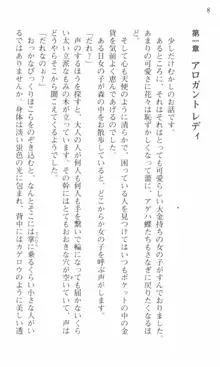 8
第一章　アロガントレディ
少しだけむかしのお話です。
それはそれはとっても可愛らしい大金持ちの女の子がすんでおりました。
あまりの可愛さに花々は恥ずかしくなって蕾に、アゲハ蝶たちもさなぎに戻りたくなるほ
どです。
そして天使のように清らかで、困っている人を見つけてはいつもポケットの中の金
貨を気前よく恵んであげるのでした。
ある日女の子が森の中をお散歩していると、どこからか女の子を呼ぶ声がします。
『だれ？』
声のするほうを探すと、大人の人が何人も何人も手を繋いで輪になっても届かない
ような立派なもみの木が立っています。その幹にはとてもおおきな穴が空いていて、声は
そこから聞こえてくるのでした。
『だれなのぉ！』
おっかなびっくりほこらをのぞき込むと、なんとそこには掌に乗るくらい小さな人がい
るではありませんか！　身体は淡い蛍色の光に包まれ、背中にはカゲロウのように美しい透